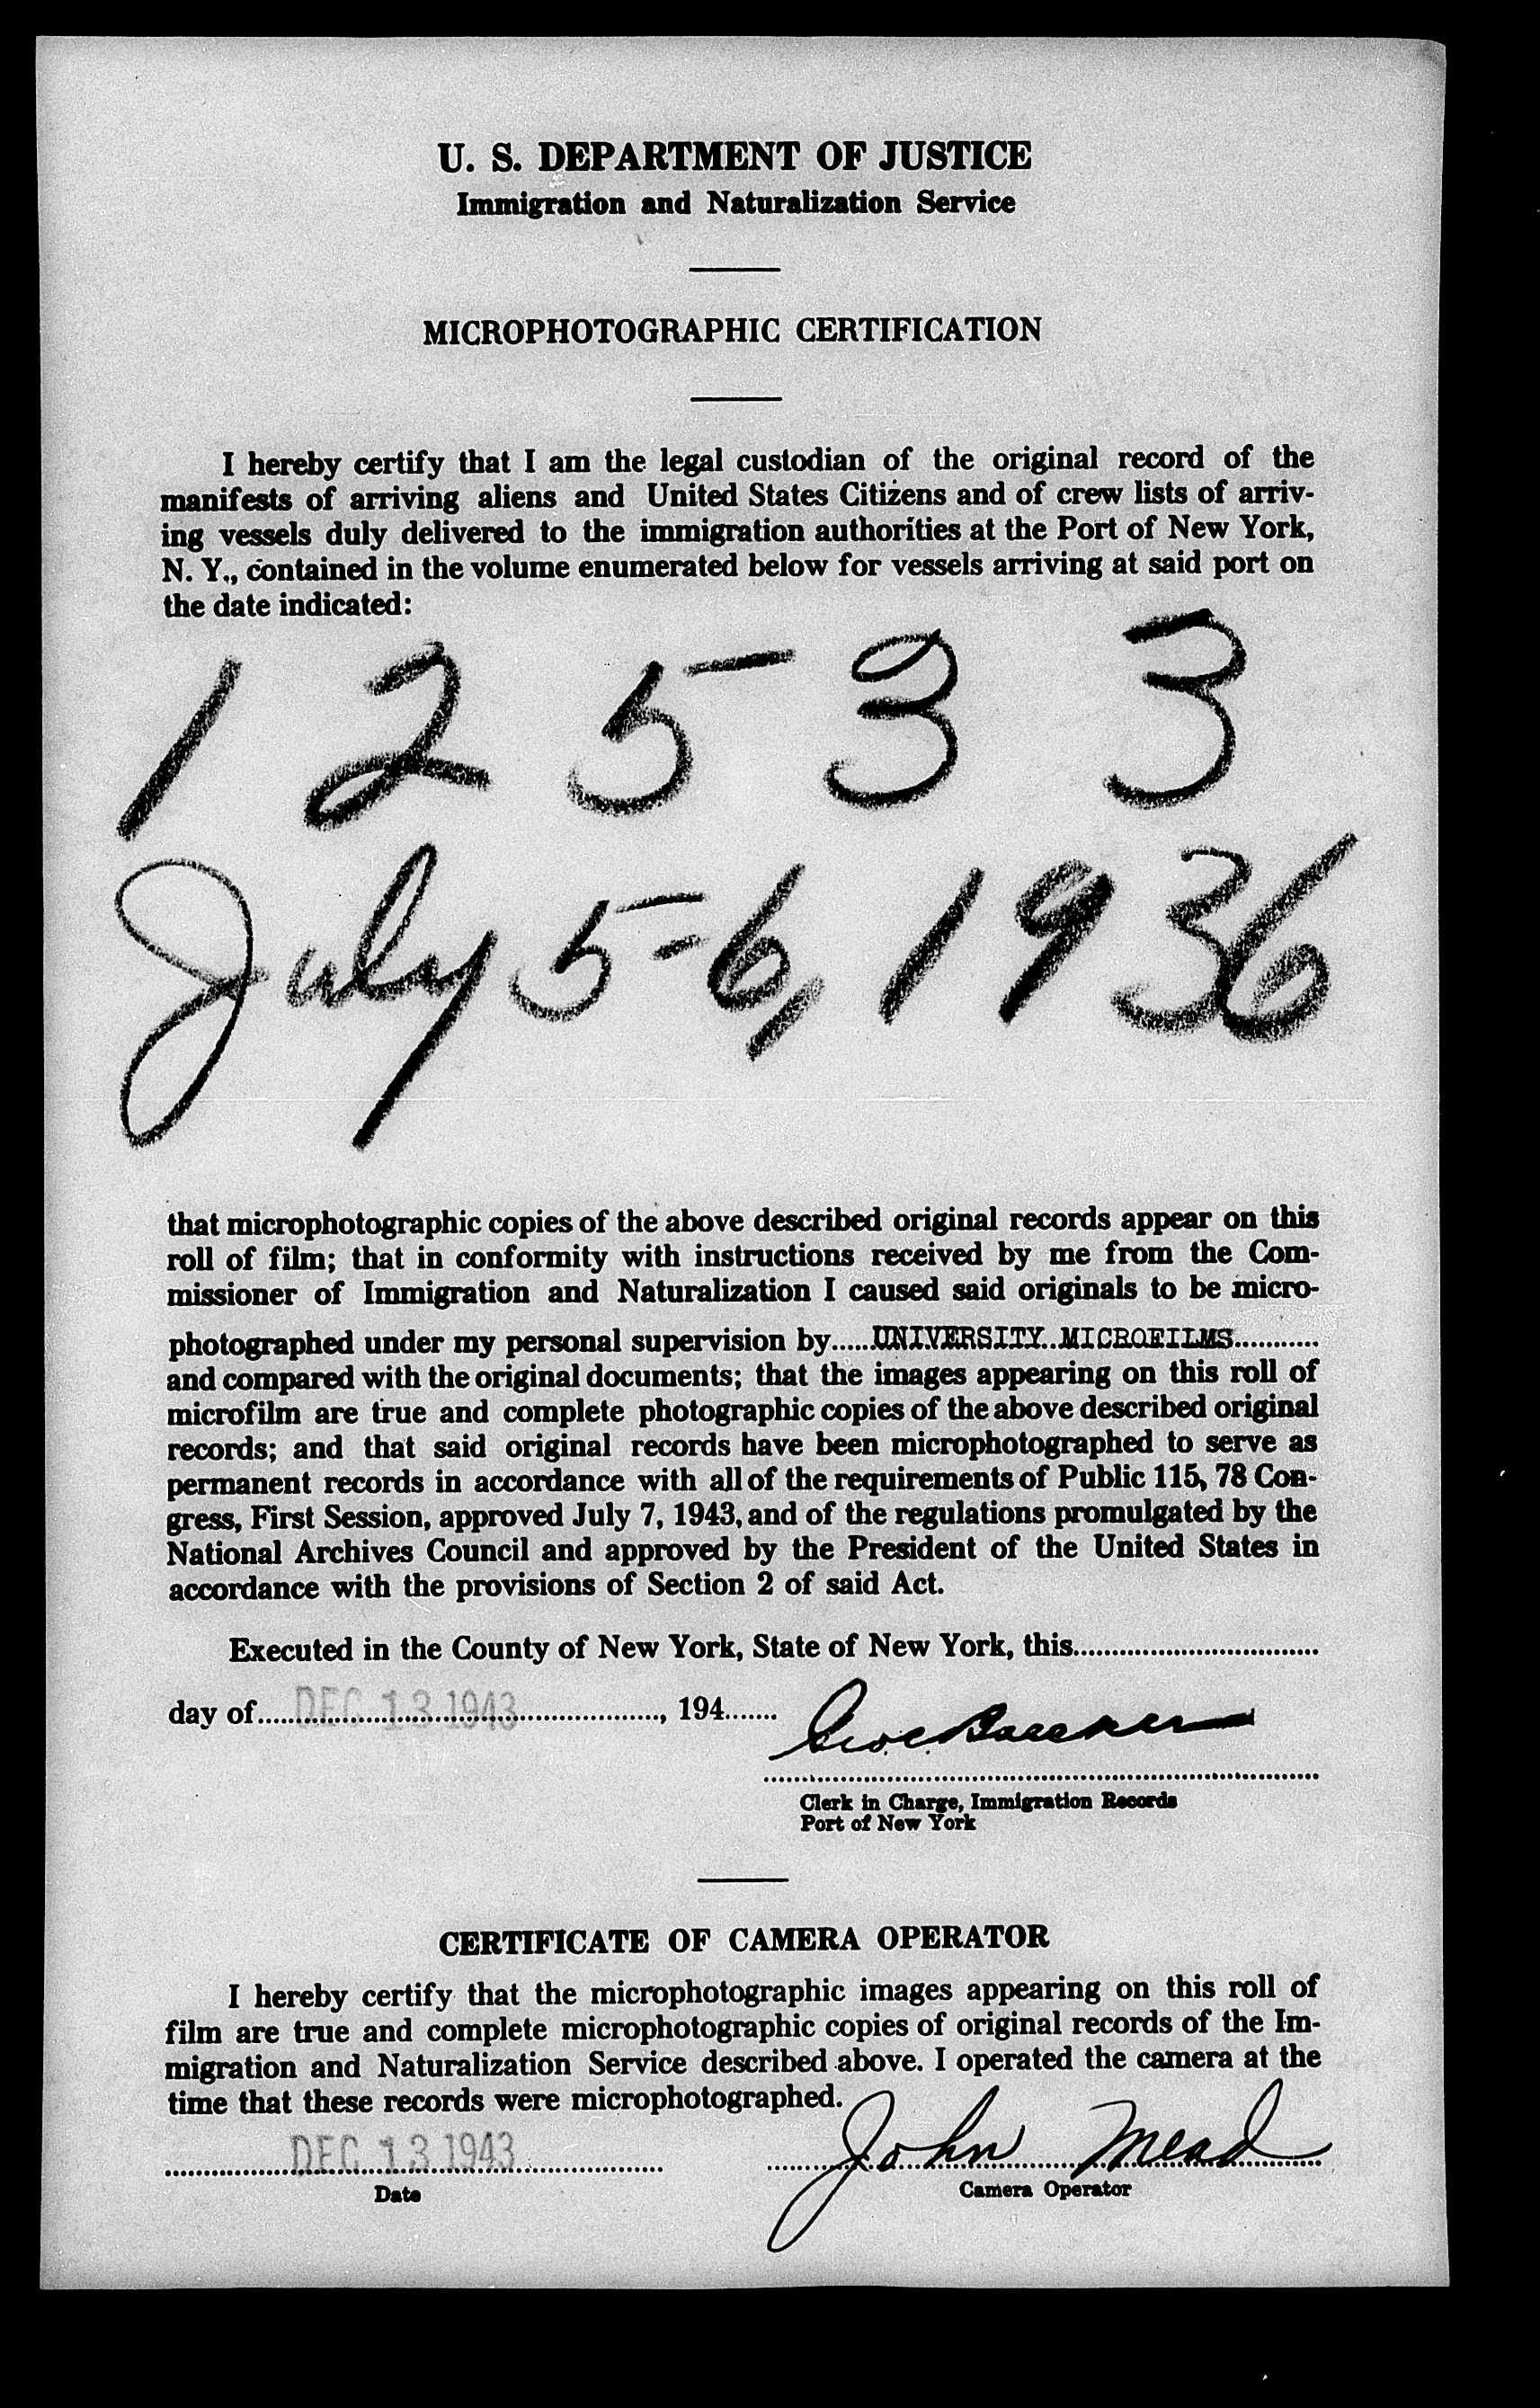 U. S. DEPARTMENT OF JUSTICE
Immigration and Naturalization Service
MICROPHOTOGRAPHIC CERTIFICATION
I hereby certify that I am the legal custodian of the original record of the
manifests of arriving aliens and United States Citizens and of crew lists of arriv-
ing vessels duly delivered to the immigration authorities at the Port of New York,
N. Y., contained in the volume enumerated below for vessels arriving at said port on
the date indicated:
1 2 5 3 3
July 5-6, 1936
that microphotographic copies of the above described original records appear on this
roll of film; that in conformity with instructions received by me from the Com-
missioner of Immigration and Naturalization I caused said originals to be micro-
photographed under my personal supervision by.....UNIVERSITY..MICROFILMS...........
and compared with the original documents; that the images appearing on this roll of
microfilm are true and complete photographic copies of the above described original
records; and that said original records have been microphotographed to serve as
permanent records in accordance with all of the requirements of Public 115, 78 Con-
gress, First Session, approved July 7, 1943, and of the regulations promulgated by the
National Archives Council and approved by the President of the United States in
accordance with the provisions of Section 2 of said Act.
Executed in the County of New York, State of New York, this................................
day of.....DEC 13 1943..................., 194.......
Clerk in Charge, Immigration Records
Port of New York
CERTIFICATE OF CAMERA OPERATOR
I hereby certify that the microphotographic images appearing on this roll of
film are true and complete microphotographic copies of original records of the Im-
migration and Naturalization Service described above. I operated the camera at the
time that these records were microphotographed.
DEC 13 1943 John Mead
Date Camera Operator